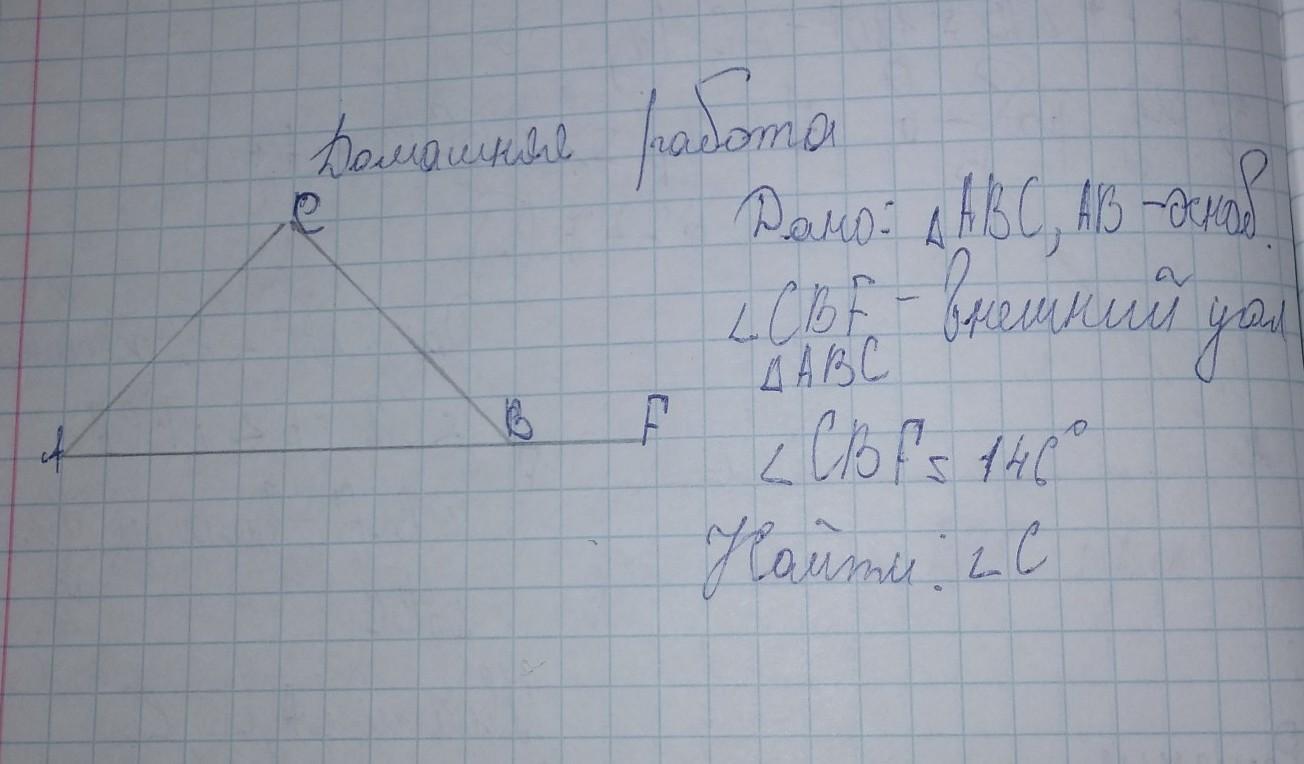 Домашняя работа
C
Дано: △ABC, AB - основ.
∠CBF - внешний угол
△ABC
A
B
F
∠CBF = 146°
Найти: ∠C